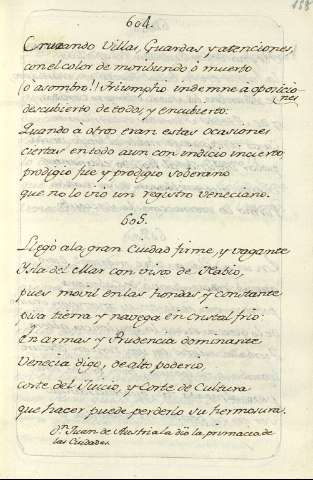 604.
Cruzando Villas, Guardas y atenciones,
con el color de moribundo ò muerto
(ò asombro!) Triumpho indemne a oposicio
nes
descubierto de todos, y encubierto:
Quando à otros eran estas ocasiones
ciertas en todo aun con indicio incierto,
prodigio fue y prodigio soberano
que no lo viò un registro veneciano.
605.
Llegò a la gran Ciudad firme, y vagante
Ysla del Mar con visos de Navio,
pues movil en las hondas y constante
pisa tierra y navega en cristal frio:
En armas y Prudencia dominante
Venecia digo, de alto poderio,
corte del Juicio, y Corte de Cultura
que hacer puede perderlo su hermosura.
Dn. Juan de Austria la diò la primacia de
las Ciudades.